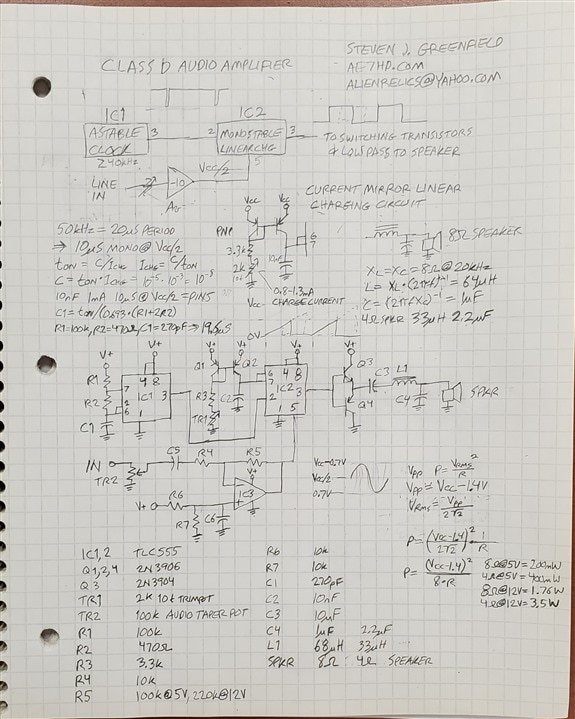 CLASS D AUDIO AMPLIFIER
STEVEN J. GREENFIELD
AE7HD.COM
ALIENRELICS@YAHOO.COM
IC1
ASTABLE
CLOCK
≥40kHz
3
2
IC2
MONOSTABLE
LINEAR CHG
3
5
TO SWITCHING TRANSISTORS
& LOWPASS TO SPEAKER
Vcc/2
LINE
IN
-10
CURRENT MIRROR LINEAR
CHARGING CIRCUIT
Vcc
Vcc
PNP
3.3k
2k
10nF
6
7
0.8-1.3mA
CHARGE CURRENT
8Ω SPEAKER
50kHz = 20µS PERIOD
⇒ 10µS MONO @ Vcc/2
10nF 1mA 10µS @ Vcc/2 = PIN5
C1 = ton/(0.693·(R1+2R2)
R1=100k, R2=470Ω, C1=270pF ⇒ 19.6µS
XL = XC = 8Ω @ 20kHz
L = XL·(2πf)⁻¹ = 64µH
C = (2πfXc)⁻¹ = 1µF
4Ω SPKR 33µH 2.2µF
0V
V+
V+
V+
V+
Q1
Q2
Q3
Q4
R1
R2
C1
7
2
6
4 8
IC1
3
1
R3
TR1
C2
6
7
2
4 8
IC2
3
1 5
C3
L1
C4
SPKR
IN
TR2
C5
R4
R5
V+
R6
R7
C6
V+
IC3
Vcc-0.7V
Vcc/2
0.7V
Vpp P = Vrms²/R
Vpp = Vcc-1.4V
Vrms = Vpp/2√2
P = ((Vcc-1.4)/2√2)² · 1/R
P = (Vcc-1.4)²/8·R
8Ω@5V = 200mW
4Ω@5V = 400mW
8Ω@12V = 1.76W
4Ω@12V = 3.5W
IC1,2 TLC555
Q1,2,4 2N3906
Q3 2N3904
TR1 2k 10t TRIMPOT
TR2 100k AUDIO TAPER POT
R1 100k
R2 470Ω
R3 3.3k
R4 10k
R5 100k@5V, 220k@12V
R6 10k
R7 10k
C1 270pF
C2 10nF
C3 10µF
C4 1µF 2.2µF
L1 68µH 33µH
SPKR 8Ω 4Ω SPEAKER